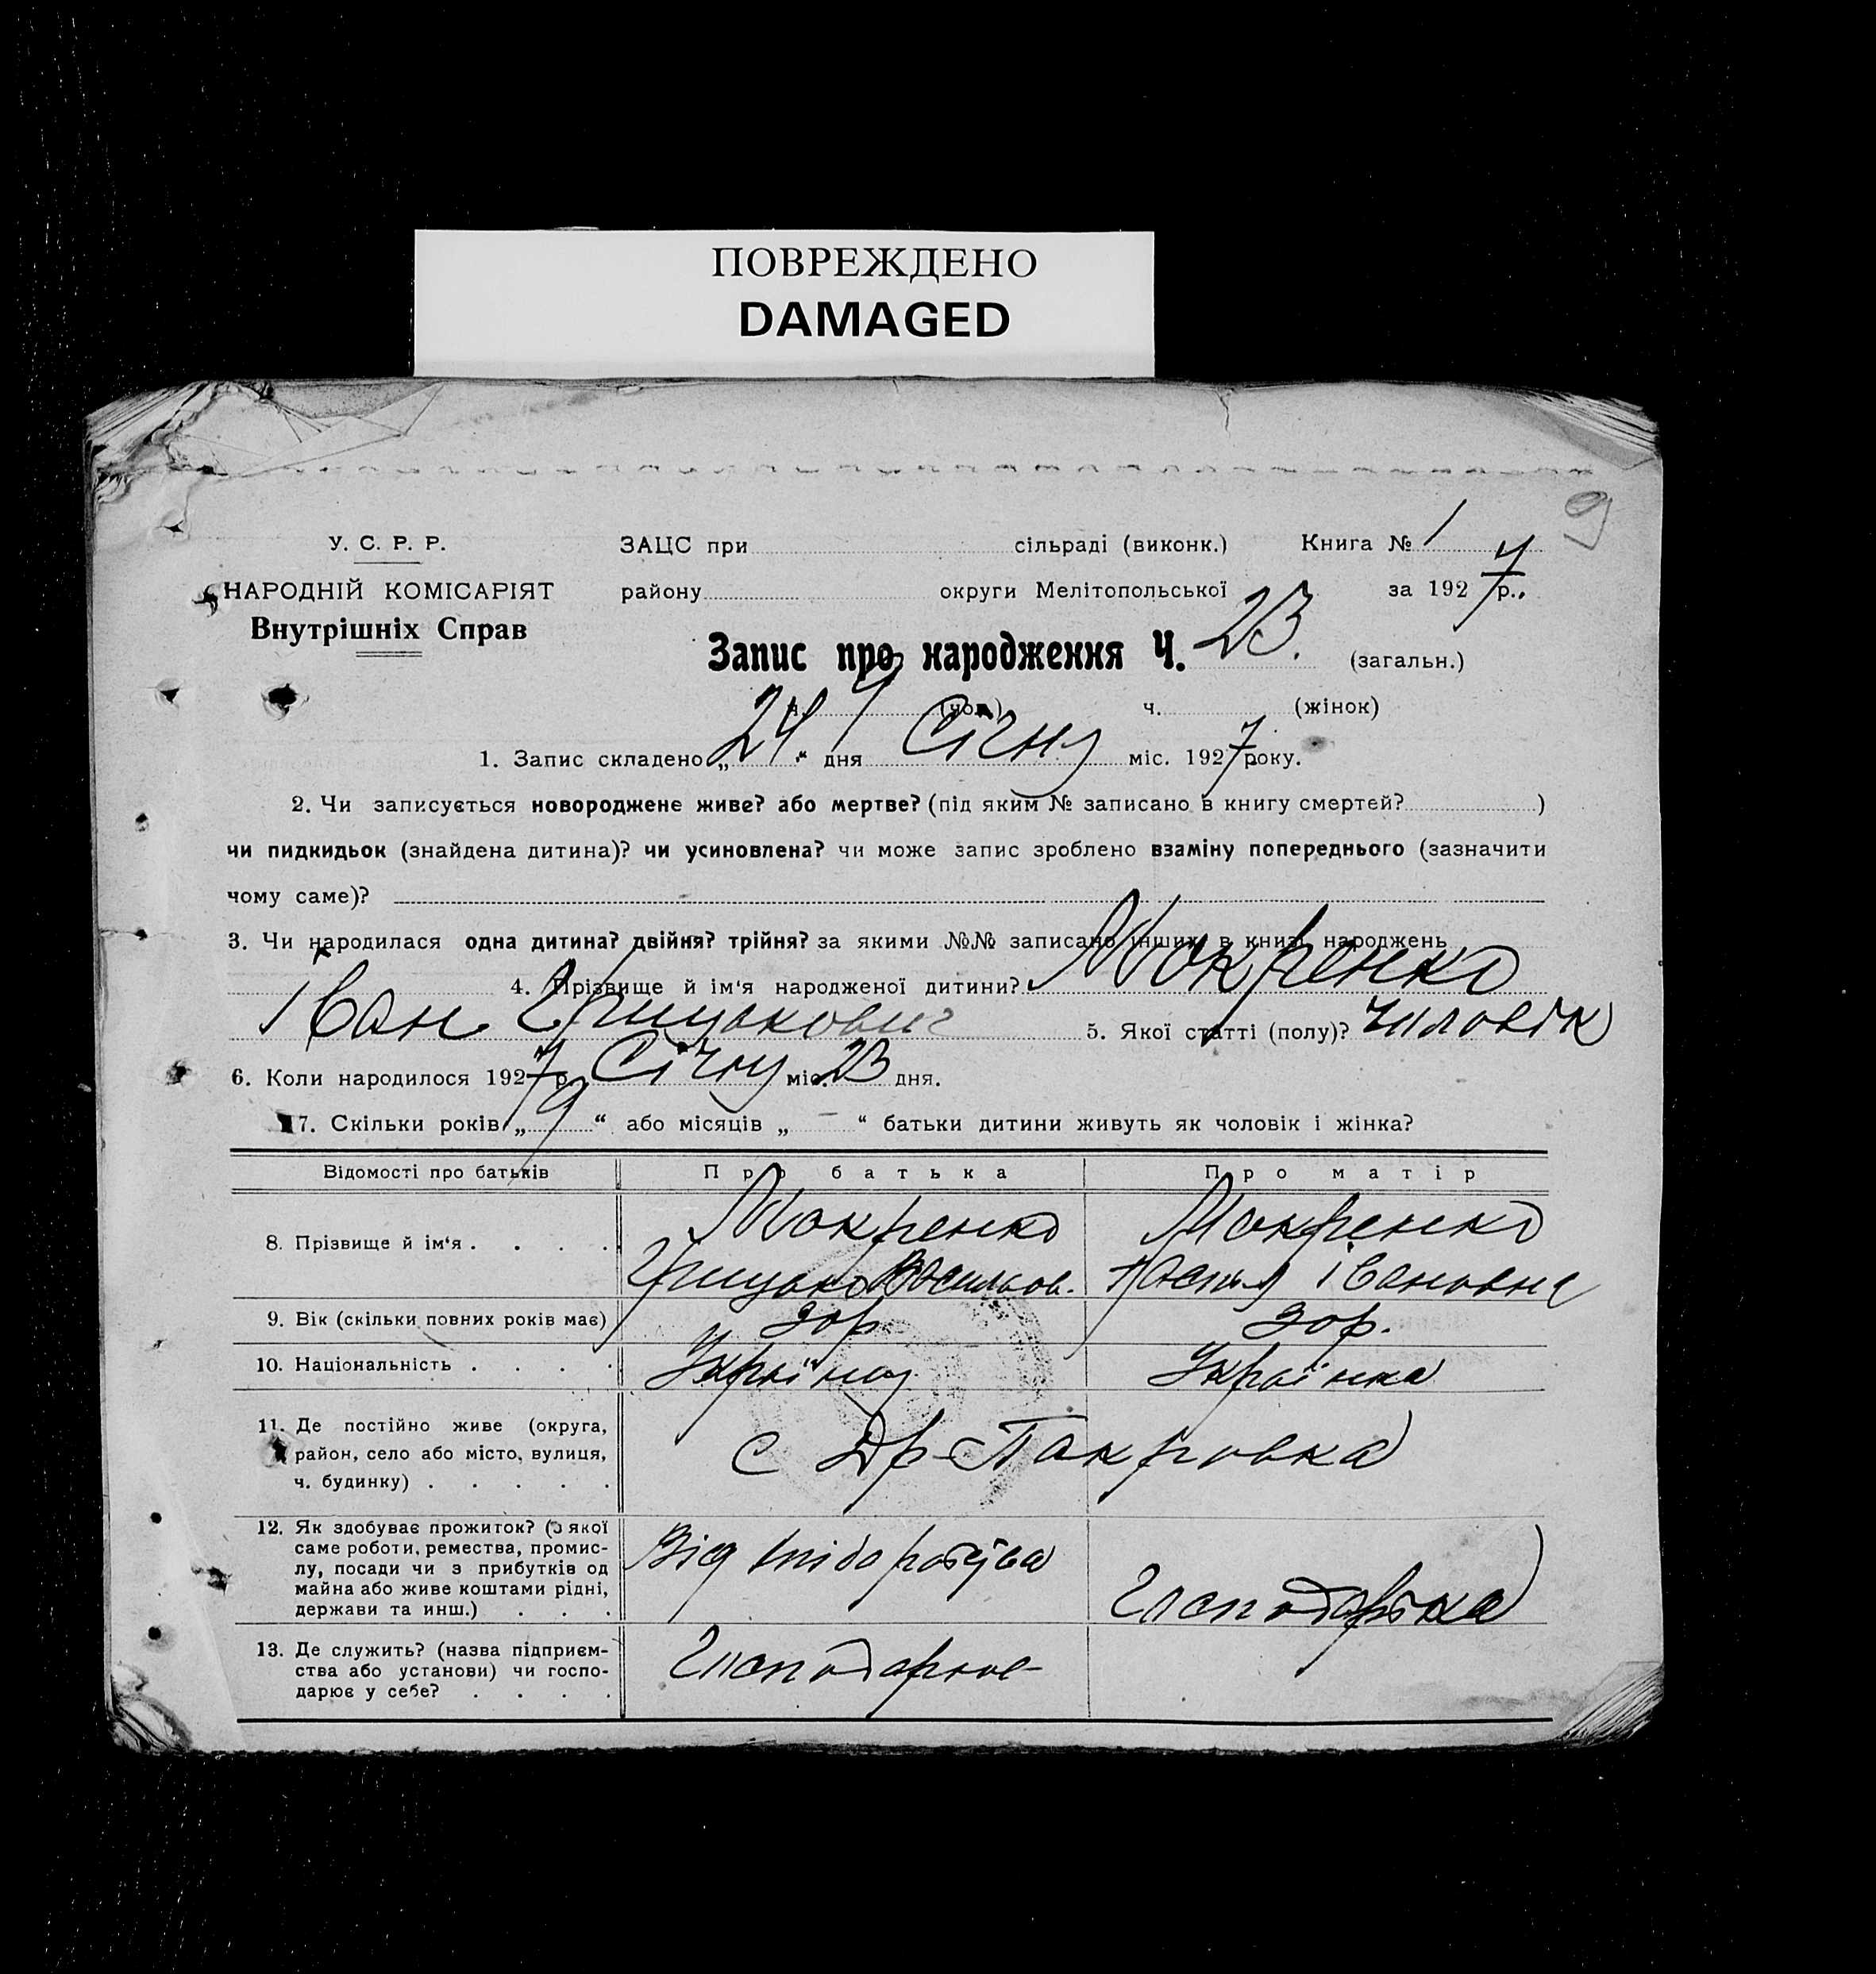 ПОВРЕЖДЕНО
DAMAGED
9
У. С. Р. Р. ЗАЦС при сільраді (виконк.) Книга № 1
НАРОДНІЙ КОМІСАРІЯТ району округи Мелітопольської за 1927 р.
Внутрішніх Справ
Запис про народження Ч. 23. (загальн.)
ч. 9 (чол.) ч. (жінок)
1. Запис складено „24“ дня Січня міс. 1927 року.
2. Чи записується новороджене живе? або мертве? (під яким № записано в книгу смертей? )
чи пидкидьок (знайдена дитина)? чи усиновлена? чи може запис зроблено взаміну попереднього (зазначити
чому саме)?
3. Чи народилася одна дитина? двійня? трійня? за якими №№ записано інших в книзі народжень
4. Прізвище й ім'я народженої дитини? Мокренко
Іван Грицькович 5. Якої статті (полу)? Чиловік
6. Коли народилося 1927 р. Січня міс. 23 дня.
7. Скільки років „9“ або місяців „—“ батьки дитини живуть як чоловік і жінка?
Відомості про батьків Про батька Про матір
8. Прізвище й ім'я . . . . Мокренко Мокренко
Грицько Васильов. Івановна
9. Вік (скільки повних років має) 30р 30р.
10. Національність . . . . Україна Українка
11. Де постійно живе (округа,
район, село або місто, вулиця,
ч. будинку) . . . . .
с Др-Пакровка
12. Як здобуває прожиток? (з якої
саме роботи, ремества, промис-
лу, посади чи з прибутків од
майна або живе коштами рідні,
держави та инш.) . . .
Від
Гасподарька
13. Де служить? (назва підприєм-
ства або установи) чи госпо-
дарює у себе? . . . .
Гасподарює